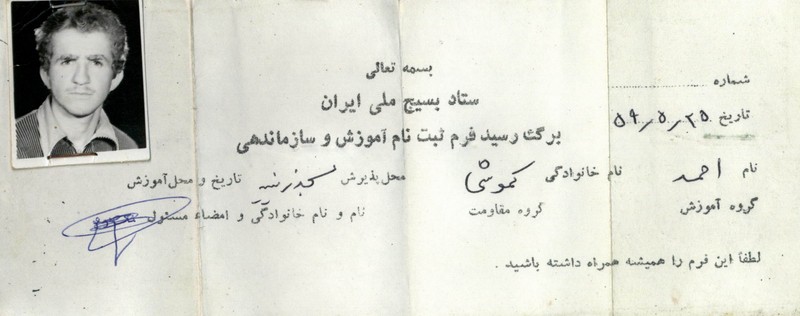 بسمه تعالی
ستاد بسیج ملی ایران
برگ رسید فرم ثبت نام آموزش و سازماندهی
شماره
تاریخ ۵۹/۵/۲۵
نام احمد نام خانوادگی محل پذیرش تاریخ و محل آموزش
گروه آموزش گروه مقاومت نام و نام خانوادگی و امضاء مسئول
لطفاً این فرم را همیشه همراه داشته باشید .